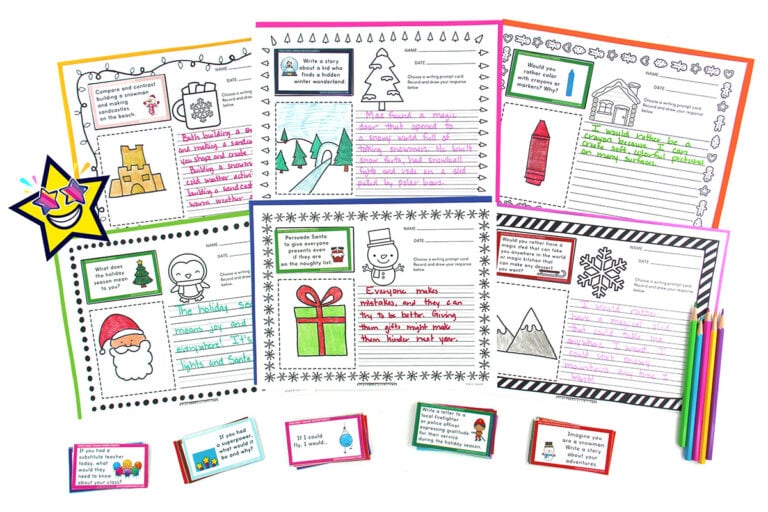 Compare and contrast
building a snowman
and making
sandcastles
on the beach.
NAME
DATE
Choose a writing prompt card.
Record and draw your response
below.
Both building a
and making a sand
you shape and create
Building a snow
cold weather activi
building a sandcast
warm weather
Write a story
about a kid who
finds a hidden
winter wonderland.
NAME
DATE
Choose a writing prompt card.
Record and draw your response
below.
Max found a magic
door that opened to
a snowy world full of
talking snowmen. He built
snow forts, had snowball
fights and rode on a sled
pulled by polar bears.
Would you
rather color
with crayons or
markers? Why?
NAME
DATE
Choose a writing prompt card.
Record and draw your response
below.
I would rather be a
crayon because I can
create soft, colorful pictures
on many surfaces.
What does
the holiday
season mean
to you?
NAME
DATE
Choose a writing prompt card.
Record and draw your response
below.
The holiday Sea
means joy and
everywhere! It's
lights and Santa
Persuade Santa
to give everyone
presents even
if they are
on the naughty list.
NAME
DATE
Choose a writing prompt card.
Record and draw your response
below.
Everyone makes
mistakes, and they can
try to be better. Giving
them gifts might make
them kinder next year.
Would you rather have a
magic sled that can take
you anywhere in the world
or magic kitchen that
can make any dessert
you want?
NAME
DATE
Choose a writing prompt card.
Record and draw your response
below.
I would rather
have a magical sled
anywhere I want. I
could visit
mountains and take a
If you had a
substitute teacher
today, what
would they
need to know
about your class?
If you had
a superpower,
what would it
be and why?
If I could
fly, I would...
Write a letter to a
local firefighter
or police officer
expressing gratitude
for their service
during the holiday season.
Imagine you
are a snowman.
Write a story
about your
adventures.